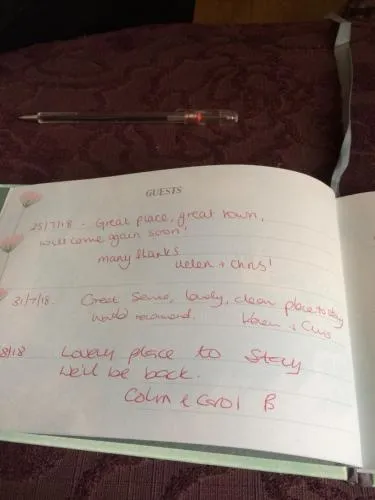 GUESTS
25/7/18 - Great place, great town,
will come again soon!
many thanks
Helen + Chris!
31/7/18. Great Service, lovely, clean place to stay
Would recommend. Karen + Chris
8/18 Lovely place to Stay
We'll be back.
Colin & Carol B